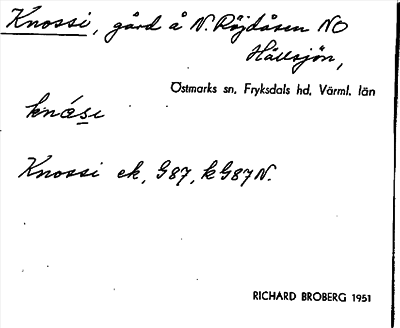 Knossi, gård å N. Röjdåsen NO
Hållsjön,
Östmarks sn, Fryksdals hd, Värml. län
knási
Knossi ek, G87, kG87N.
RICHARD BROBERG 1951